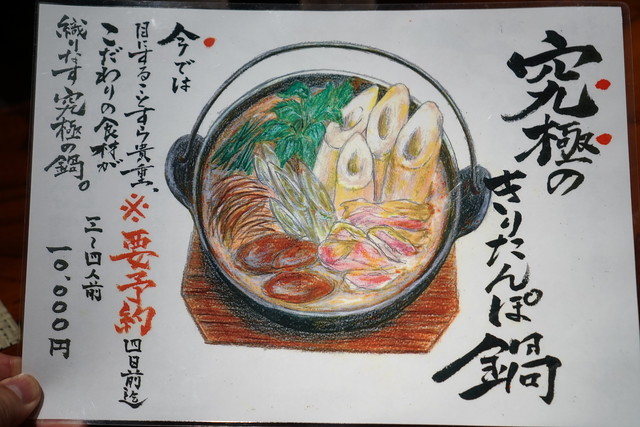 究極の
きりたんぽ
鍋
今では
目にすることすら貴重、
こだわりの食材が
織りなす究極の鍋。
※要予約
四日前迄
三〜四人前
一〇.〇〇〇円